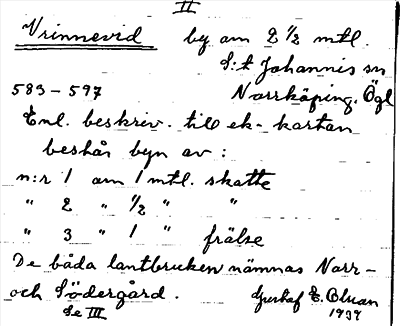 II
Vrinnevid by om 2 1/2 mtl.
S:t Johannis sn
583-597 Norrköping. Ögl
Enl. beskriv. till ek-kartan
består byn av:
n:r 1 om 1 mtl. skatte
" 2 " 1/2 " "
" 3 " 1 " frälse
De båda lantbruken nämnas Norr-
och Södergård. Gustaf E. Bluan
Se III 1939